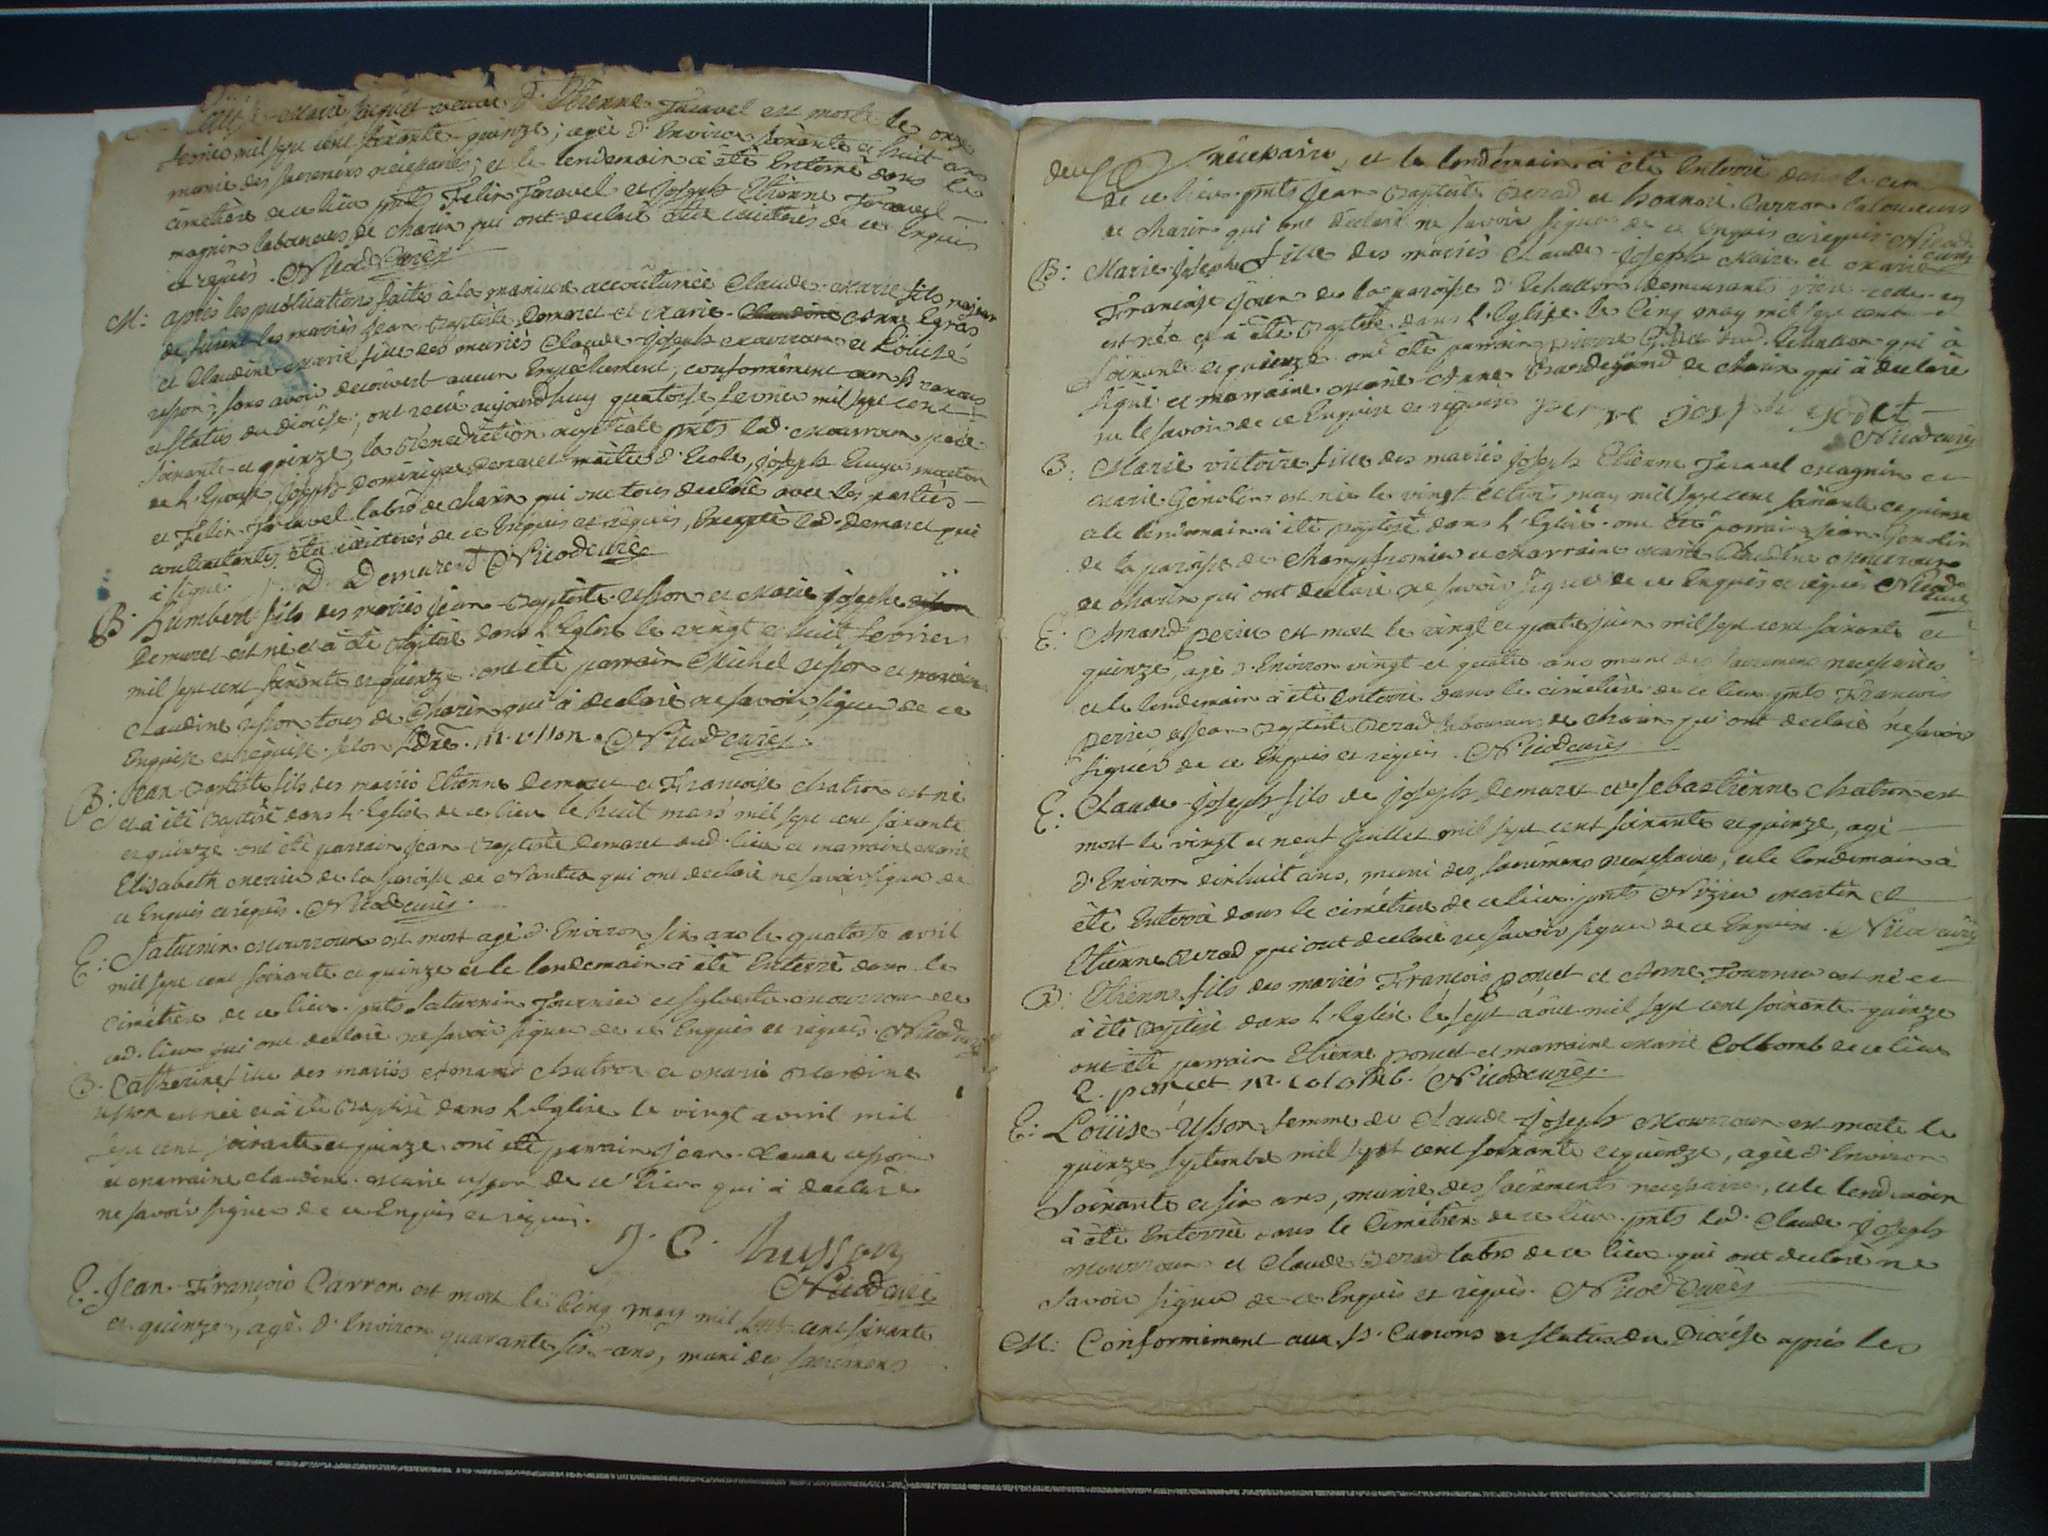 Marie veuve d'Etienne Juravel est morte le onze
fevrier mil sept cent soixante-quinze; agée d'Environ soixante et huit ans
munie des sacremens necessaires; et le lendemain à été Enterrée dans le
cimetière de ce lieu pnts Felix Juravel et Joseph Etienne Juravel
magnin laboureurs de Charix qui ont declaré être illiterés de ce Enquis
et requis. Nicod curé
M: après les publications faites à la maniere accoutumée Claude-Marie fils majeur
de furent les mariés Jean-Baptiste Demaret et Marie-Claudine Anne Egras
et Claudine-Marie fille des mariés Claude-Joseph Mourroux et Louise
Usson; sans avoir decouvert aucun Empechement, conformement aux Ss canons
et statuts du diocèse; ont recu aujourd'huy quatorse fevrier mil sept cent
soixante-et quinze la Benediction nuptiale pnts lad. Mourroux père
de L'Epouse Joseph Dominique Demaret maitre d'Ecole, Joseph
et Felix Juravel labrs de charix qui ont tous declaré avec les parties
contractantes être illiterés de ce Enquis et requis, Excepté led. Demaret qui
à signé. J. D. Demaret Nicod curé
B: Humbert fils des mariés Jean-Baptiste Usson et Marie Josephe
Demaret est né et à été Baptisé dans L'Eglise le vingt et huit fevrier
mil sept cent soixante et quinze. ont été parrain Michel Usson et marraine
Claudine Usson tous de Charix qui à declaré ne savoir signer de ce
Enquise et requise. selon M. usson. Nicod curé
B: Jean-Baptiste fils des mariés Etienne Demaret et Françoise Chatron est né
et à été Baptisé dans L'Eglise de ce lieu le huit mars mil sept cent soixante
et quinze ont été parrain Jean-Baptiste Demaret dud. lieu et marraine Marie
Elisabeth Mercier de la paroisse de Nantua qui ont declaré ne savoir signer de
ce Enquis et requis. Nicod curé.
E: Saturnin Mourroux est mort agé d'Environ six ans le quatorse avril
mil sept cent soixante et quinze et le lendemain à été Enterré dans le
Cimetière de ce lieu. pnts Saturnin Fournier et Sylvestre Mourroux de
ced. lieu qui ont declaré ne savoir signer de ce Enquis et requis. Nicod curé
B. Catherine fille des mariés Amand Chatron et Marie
Usson est née et à été Baptisé dans L'Eglise le vingt avril mil
sept cent soixante et quinze ont été parrain Jean-Claude Usson
et marraine Claudine-Marie Usson de ce lieu qui à declaré
ne savoir signer de ce Enquis et requis.
J. C. husson
Nicod curé
E. Jean-François Carron est mort le cinq may mil sept cent soixante
et quinze, agé d'Environ quarante six-ans, muni des sacremens
necessaire, et le lendemain à été Enterré dans le cim
de ce lieu pnts Jean Baptiste Berod et honnoré Carron laboureurs
de Charix qui ont declaré ne savoir signer de ce Enquis et requis. Nicod curé
B: Marie-Josephe fille des mariés Claude-Joseph Maire et Marie
Françoise de la paroisse d'Echallon demeurants
est née et à été Baptisé dans L'Eglise le cinq may mil sept cent
soixante et quinze. ont été parrain pierre dud. Echallon qui à
signé et marraine Marie-Anne de Charix qui à declaré
ne le savoir de ce Enquise et requise pierre joseph godet
Nicod curé
B: Marie victoire fille des mariés Joseph Etienne Juravel Magnin et
Marie Genolin est née le vingt et trois may mil sept cent soixante et quinze
et le lendemain à été Baptisé dans L'Eglise. ont été parrain Jean Genolin
de la paroisse de Champfromier et Marraine Marie Claudine Mourroux
de Charix qui ont declaré ne savoir signer de ce Enquis et requis Nicod curé
E: Amand perrier est mort le vingt et quatre juin mil sept cent soixante et
quinze, agé d'Environ vingt et quatre ans muni des sacremens necessaires
et le lendemain à été Enterré dans le cimetière de ce lieu pnts François
perrier et Jean Baptiste Berod laboureurs de charix qui ont declaré ne savoir
signer de ce Enquis et requis. Nicod curé
E: Claude-Joseph fils de Joseph Demaret et Sebastienne Chatron est
mort le vingt et neuf juillet mil sept cent soixante et quinze, agé
d'Environ dixhuit ans, muni des sacremens necessaire, et le lendemain à
été Enterré dans le cimetière de ce lieu. pnts Nizier Martin et
Etienne Berod qui ont declaré ne savoir signer de ce Enquis. Nicod curé
B: Etienne fils des mariés François poncet et Anne Fournier est né et
à été Baptisé dans L'Eglise le sept août mil sept cent soixante-quinze
ont été parrain Etienne poncet et marraine Marie Collomb de ce lieu
E. poncet M. colomb. Nicod curé.
E: Louise Usson femme de Claude-Joseph Mourroux est morte le
quinze septembre mil sept cent soixante et quinze, agée d'Environ
soixante et six ans, munie des sacrements necessaire, et le lendemain
à été Enterrée dans le Cimetière de ce lieu. pnts led. Claude Joseph
Mourroux et Claude Berod labrs de ce lieu qui ont declaré ne
savoir signer de ce Enquis et requis. Nicod Curé
M: Conformement aux Ss. Canons et statuts du Diocèse après les